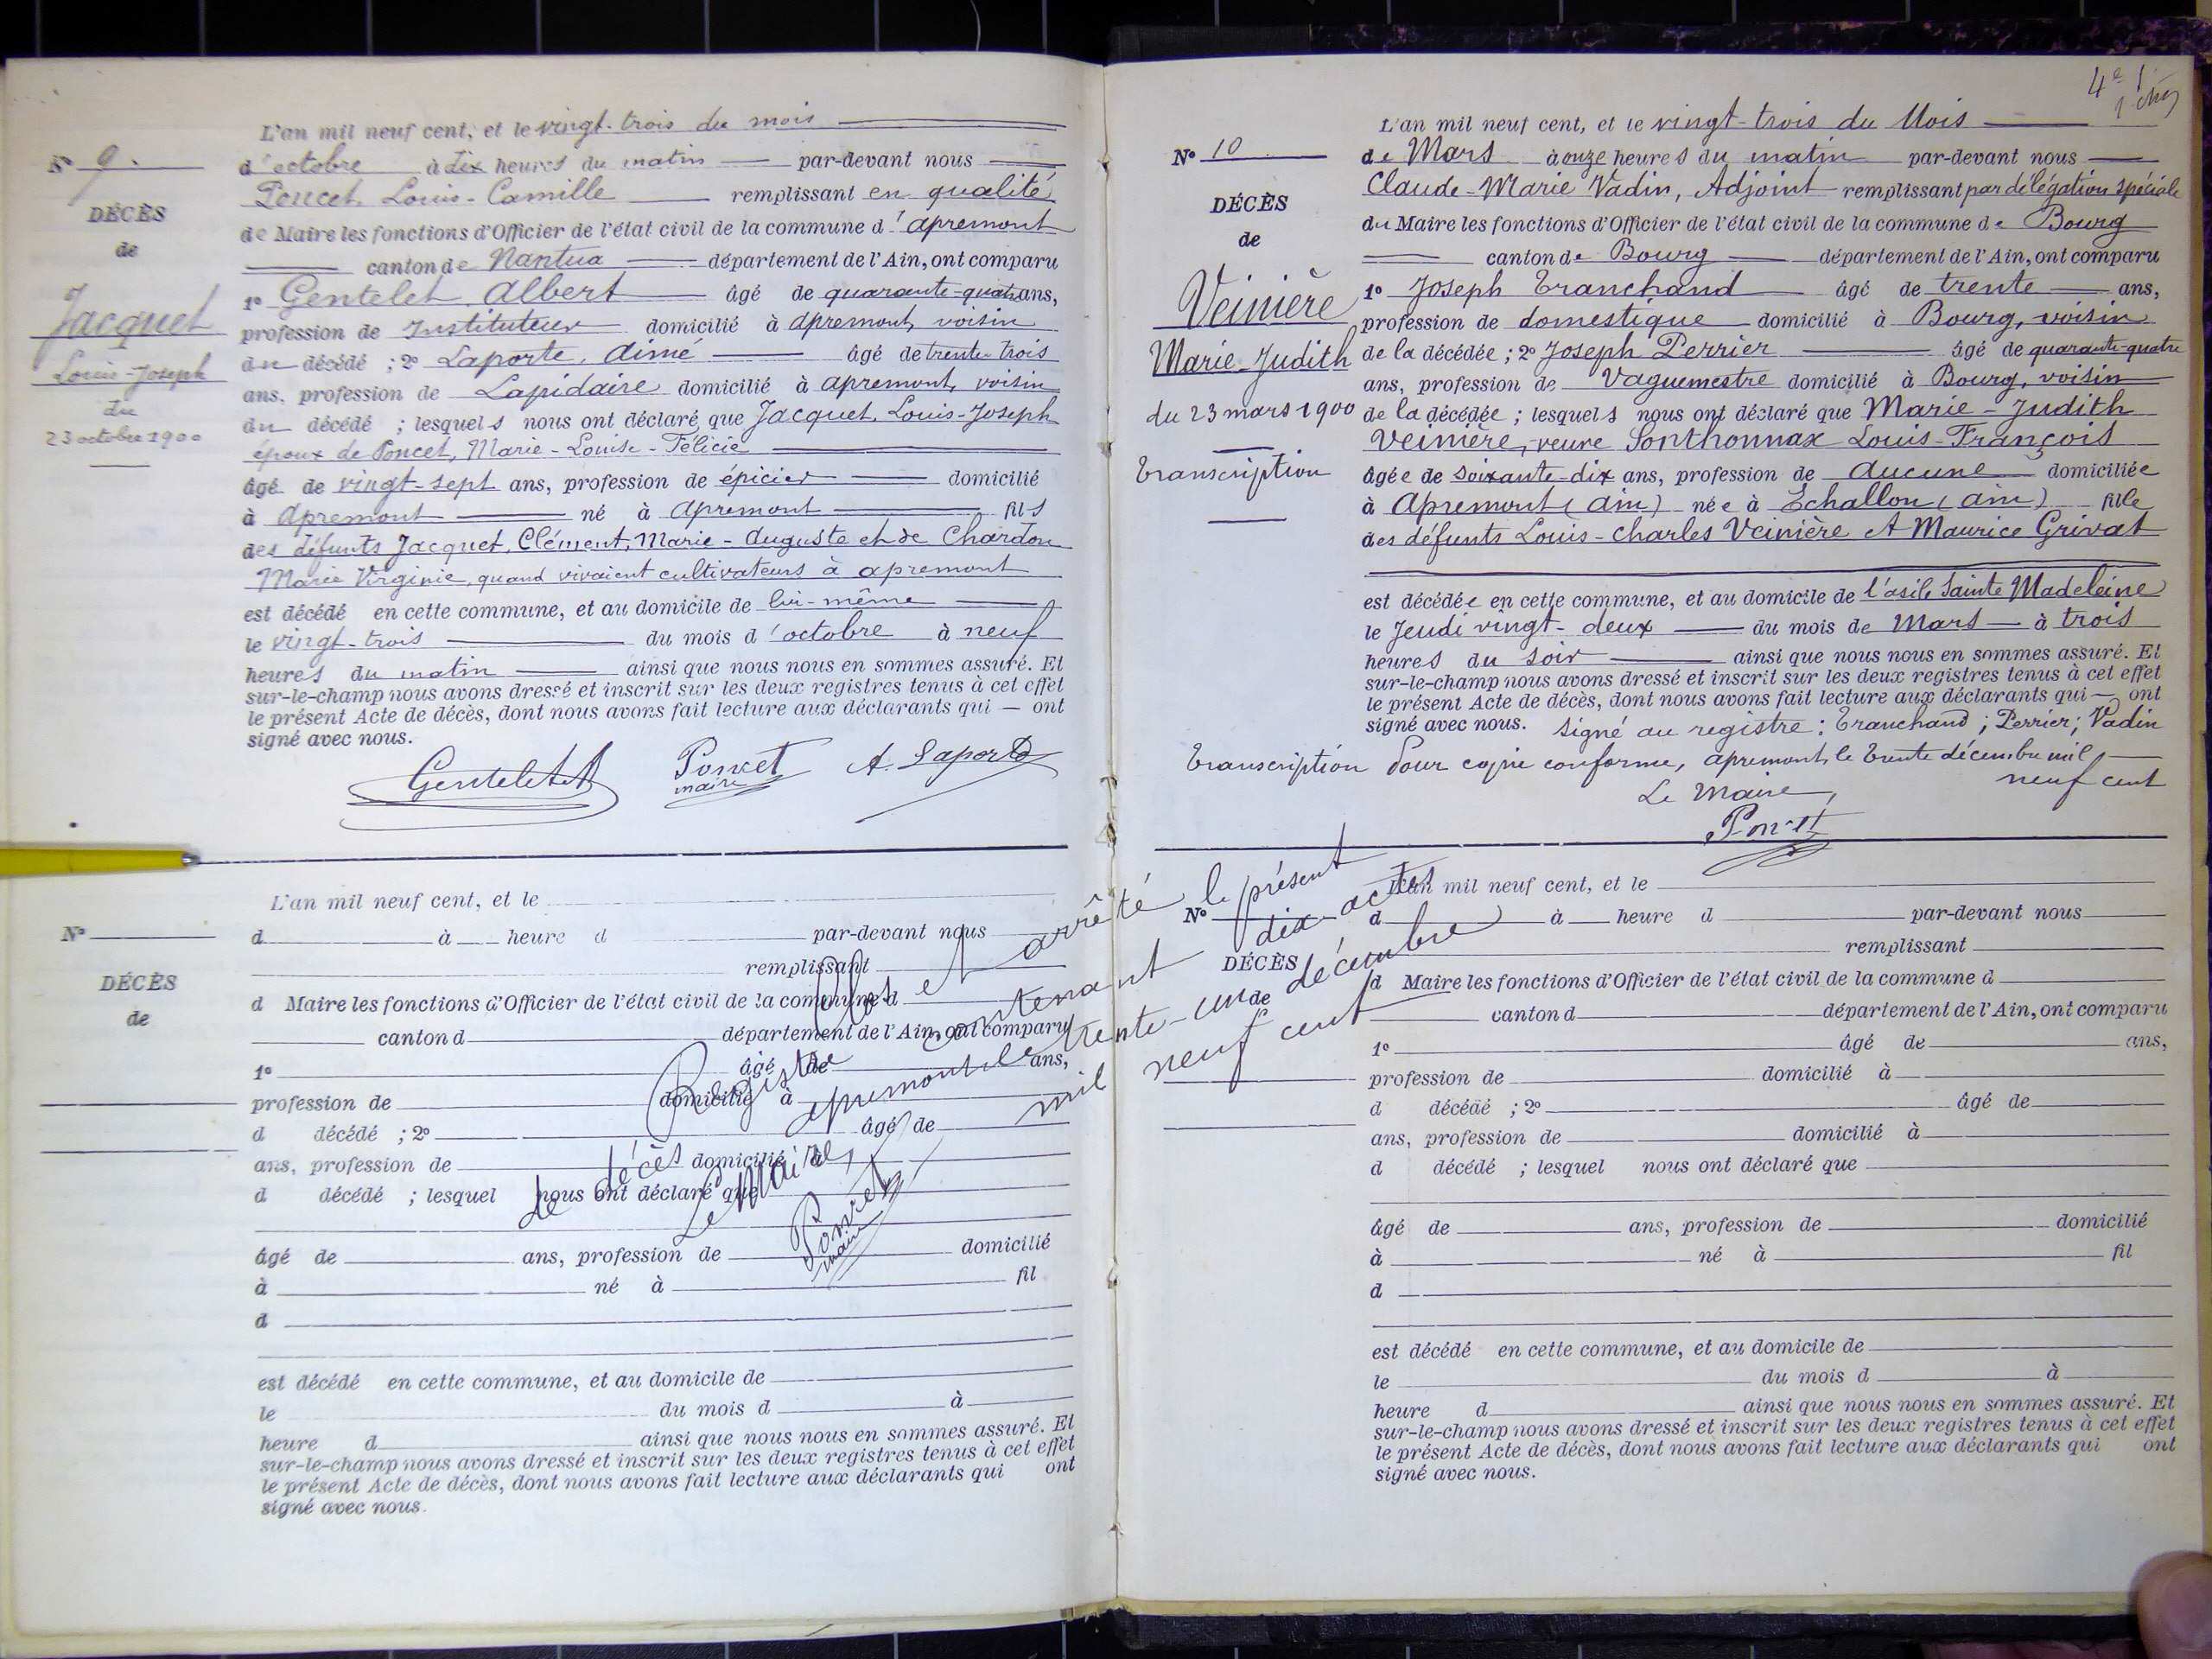 L'an mil neuf cent, et le vingt-trois du mois
N° 9.
d'octobre à dix heures du matin par-devant nous
Poncet Louis-Camille remplissant en qualité
DÉCÈS
de Maire les fonctions d'Officier de l'état civil de la commune d'Apremont
de
canton de Nantua département de l'Ain, ont comparu
1° Gentelet Albert âgé de quarante-quatre ans,
Jacquet
profession de Instituteur domicilié à Apremont, voisin
du décédé ; 2° Laporte, Aimé âgé de trente-trois
Louis-Joseph
ans, profession de Lapidaire domicilié à Apremont, voisin
du
du décédé ; lesquels nous ont déclaré que Jacquet, Louis-Joseph
23 octobre 1900
époux de Poncet, Marie-Louise-Félicie
âgé de vingt-sept ans, profession de épicier domicilié
à Apremont né à Apremont fils
des défunts Jacquet, Clément, Marie-Auguste et de Chardon
Marie Virginie, quand vivaient cultivateurs à Apremont
est décédé en cette commune, et au domicile de lui-même
le vingt-trois du mois d'octobre à neuf
heures du matin ainsi que nous nous en sommes assuré. Et
sur-le-champ nous avons dressé et inscrit sur les deux registres tenus à cet effet
le présent Acte de décès, dont nous avons fait lecture aux déclarants qui — ont
signé avec nous.
Gentelet A Poncet A. Laporte
maire
L'an mil neuf cent, et le
N°
d à heure d par-devant nous
remplissant
DÉCÈS
d Maire les fonctions d'Officier de l'état civil de la commune d
de
canton d département de l'Ain, ont comparu
1° âgé de ans,
profession de domicilié à
d décédé ; 2° âgé de
ans, profession de domicilié à
d décédé ; lesquel nous ont déclaré que
âgé de ans, profession de domicilié
à né à fil
d
est décédé en cette commune, et au domicile de
le du mois d à
heure d ainsi que nous nous en sommes assuré. Et
sur-le-champ nous avons dressé et inscrit sur les deux registres tenus à cet effet
le présent Acte de décès, dont nous avons fait lecture aux déclarants qui ont
signé avec nous.
Clos et arrêté le présent
Registre contenant dix actes
de décès
Apremont le trente-un décembre
mil neuf cent
Le Maire,
Poncet
maire
4e
L'an mil neuf cent, et le vingt-trois du Mois
N° 10
de Mars à onze heures du matin par-devant nous
Claude-Marie Vadin, Adjoint remplissant par délégation spéciale
DÉCÈS
du Maire les fonctions d'Officier de l'état civil de la commune de Bourg
de
canton de Bourg département de l'Ain, ont comparu
Veinière
1° Joseph Tranchand âgé de trente ans,
profession de domestique domicilié à Bourg, voisin
Marie-Judith
de la décédée ; 2° Joseph Perrier âgé de quarante-quatre
ans, profession de Vaguemestre domicilié à Bourg, voisin
du 23 mars 1900
de la décédée ; lesquels nous ont déclaré que Marie-Judith
Veinière, veuve Sonthonnax Louis-François
Transcription
âgée de soixante-dix ans, profession de aucune domiciliée
à Apremont (Ain) née à Echallon (Ain) fille
des défunts Louis-Charles Veinière et Maurice Grivat
est décédée en cette commune, et au domicile de l'asile Sainte Madeleine
le Jeudi vingt-deux du mois de Mars à trois
heures du soir ainsi que nous nous en sommes assuré. Et
sur-le-champ nous avons dressé et inscrit sur les deux registres tenus à cet effet
le présent Acte de décès, dont nous avons fait lecture aux déclarants qui — ont
signé avec nous. Signé au registre : Tranchand ; Perrier ; Vadin
Transcription Pour copie conforme, Apremont, le trente décembre mil
neuf cent
Le Maire,
Poncet
L'an mil neuf cent, et le
N°
d à heure d par-devant nous
remplissant
DÉCÈS
d Maire les fonctions d'Officier de l'état civil de la commune d
de
canton d département de l'Ain, ont comparu
1° âgé de ans,
profession de domicilié à
d décédé ; 2° âgé de
ans, profession de domicilié à
d décédé ; lesquel nous ont déclaré que
âgé de ans, profession de domicilié
à né à fil
d
est décédé en cette commune, et au domicile de
le du mois d à
heure d ainsi que nous nous en sommes assuré. Et
sur-le-champ nous avons dressé et inscrit sur les deux registres tenus à cet effet
le présent Acte de décès, dont nous avons fait lecture aux déclarants qui ont
signé avec nous.